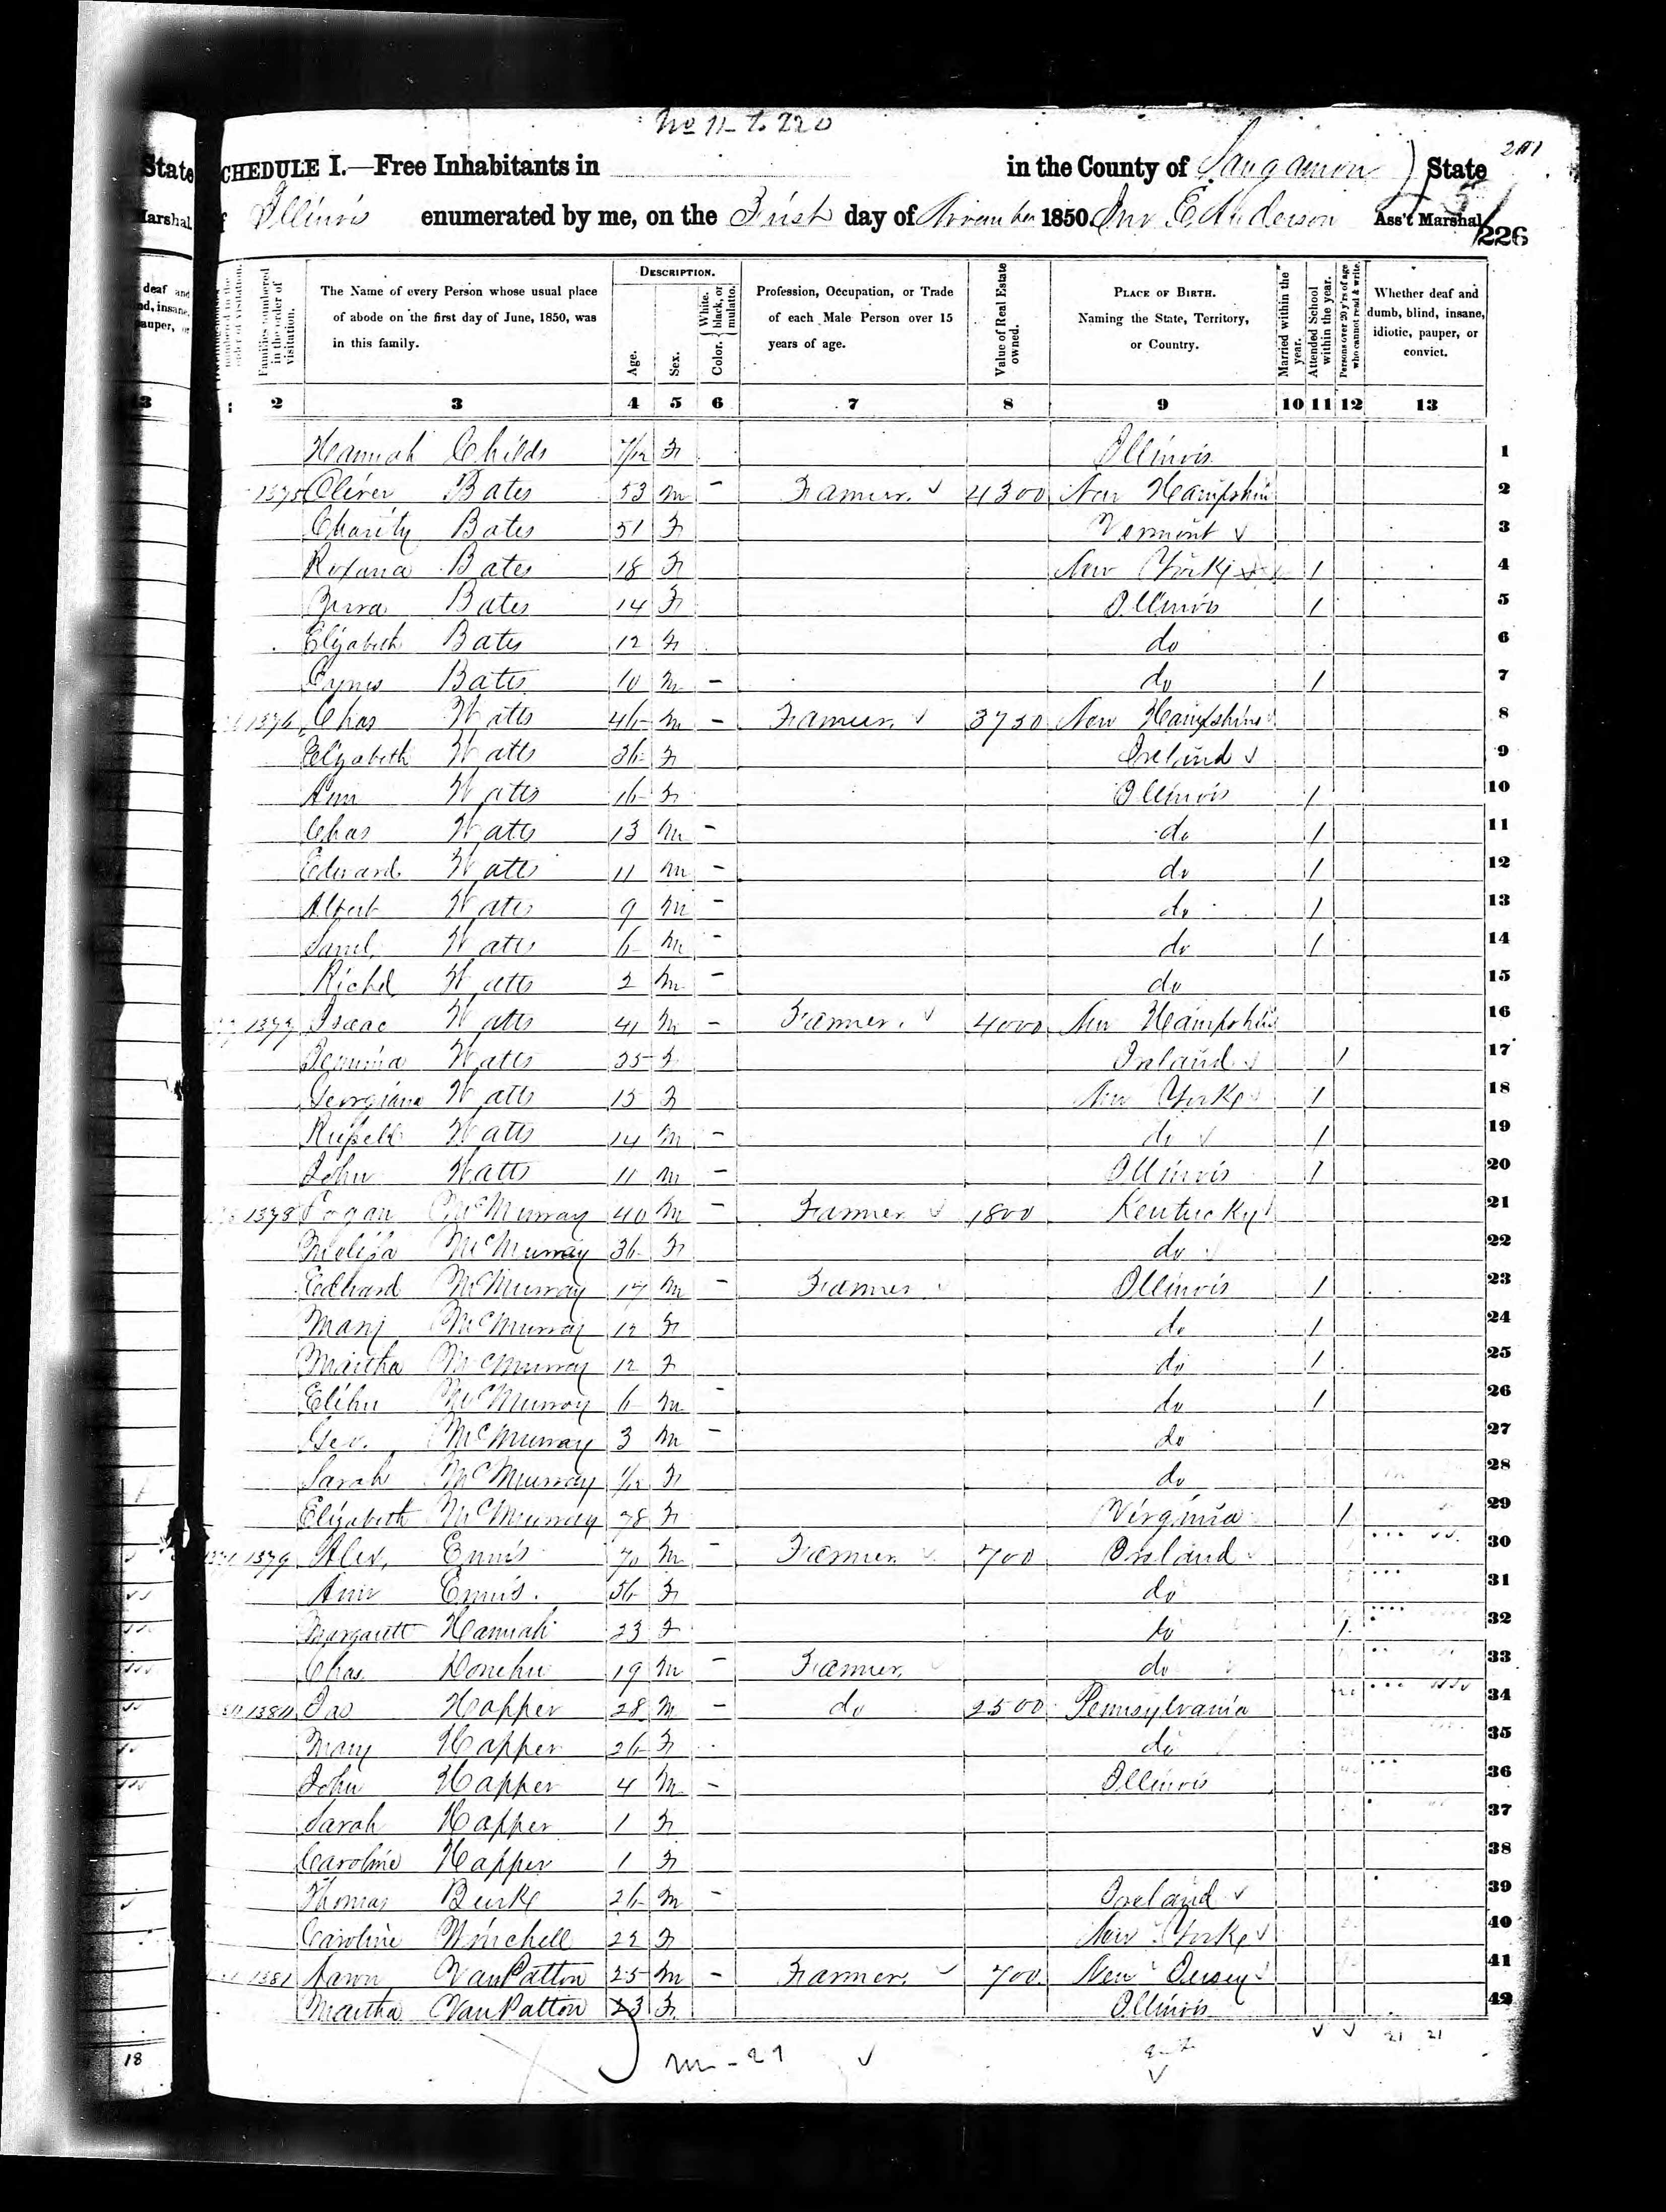 No 11 to 220
State SCHEDULE I.—Free Inhabitants in in the County of Sangamon State 201
Marshal of Illinois enumerated by me, on the First day of November 1850. Jno E Anderson Ass't Marshal 226
Families numbered in the order of visitation.
The Name of every Person whose usual place of abode on the first day of June, 1850, was in this family.
DESCRIPTION.
Age. Sex. Color. { White, black, or mulatto.
Profession, Occupation, or Trade of each Male Person over 15 years of age.
Value of Real Estate owned.
PLACE OF BIRTH. Naming the State, Territory, or Country.
Married within the year.
Attended School within the year.
Persons over 20 y'rs of age who cannot read & write.
Whether deaf and dumb, blind, insane, idiotic, pauper, or convict.
2 3 4 5 6 7 8 9 10 11 12 13
Hannah Childs 7/12 F Illinois 1
1375 Oliver Bates 53 M - Farmer 4300 New Hampshire 2
Charity Bates 51 F Vermont 3
Roxana Bates 18 F New York 1 4
Bates 14 F Illinois 1 5
Elizabeth Bates 12 F do 6
Cyrus Bates 10 M - do 1 7
1376 Chas Watts 46 M - Farmer 3750 New Hampshire 8
Elizabeth Watts 36 F Ireland 9
Ann Watts 16 F Illinois 1 10
Chas Watts 13 M - do 1 11
Edward Watts 11 M - do 1 12
Albert Watts 9 M - do 1 13
Saml Watts 6 M - do 1 14
Richd Watts 2 M - do 15
1377 Isaac Watts 41 M - Farmer. 4000 New Hampshire 16
Jemima Watts 35 F Ireland 1 17
Georgiana Watts 15 F New York 1 18
Russell Watts 14 M - do 1 19
John Watts 11 M - Illinois 1 20
1378 Logan McMurray 40 M - Farmer 1800 Kentucky 21
Meliza McMurray 36 F do 22
Edward McMurray 17 M - Farmer Illinois 1 23
Mary McMurray 12 F do 1 24
Martha McMurray 12 F do 1 25
Elihu McMurray 6 M - do 1 26
Geo. McMurray 3 M - do 27
Sarah McMurray 1/12 F do 28
Elizabeth McMurray 78 F Virginia 1 29
1379 Alex. Ennis 70 M Farmer 700 Ireland 30
Ann Ennis. 56 F do 31
Margarett Hannah 23 F do 1 32
Chas. Donehu 19 M - Farmer. do 33
1380 Jas Happer 28 M - do 2500 Pennsylvania 34
Mary Happer 26 F do 35
John Happer 4 M - Illinois 36
Sarah Happer 1 F 37
Caroline Happer 1 F 38
Thomas Burk 26 M - Ireland 39
Caroline Winchell 22 F New York 40
1381 Aaron VanPatton 25 M - Farmer. 700 New Jersey 41
Martha VanPatton 23 F. Illinois 42
18 m - 21 21 21